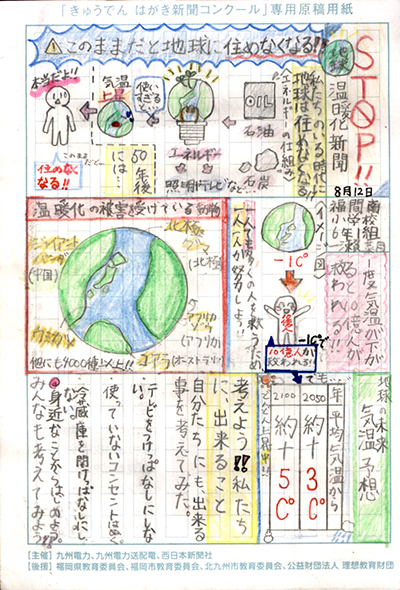 「きゅうでん はがき新聞コンクール」専用原稿用紙
⚠このままだと地球に住めなくなる!!
STOP!!
地球
温暖化新聞
8月12日
私たちのいる時代
地球は住めなくなる
エネルギーの仕組み
OIL
石油
石炭
エネルギー
照明、テレビなど
使いすぎると
気温
上昇
50年後
には…
本当だよ!!
このまま
だと…
住めなく
なる!!
温暖化の被害受けている動物
北極
グマ
(北極)
ジャイアント
パンダ
(中国)
アフリカ
ゾウ
(アフリカ)
コアラ
(オーストラリア)
他にも4000種以上!!
一人でも多くの人を救うため、
一人一人が努力しよ!!
イメージ図
-1℃
億人
-1℃で
10億人が
救われる!!
1度気温が下が
ると10億人が
救われる!!
地球の未来
気温予想
年平均気温から
2050
約+3℃
2100
約+5℃
どんどん上昇中!!
考えよう!!私たち
に、出来ること
自分たちにも、出来る
事を考えてみた。
テレビをつけっぱなしにしな
い。
使っていないコンセントはぬく
冷蔵庫を開けっぱなしにし
ない。
身近なことからはじめよう。
みんなも考えてみよう
【主催】九州電力、九州電力送配電、西日本新聞社
【後援】福岡県教育委員会、福岡市教育委員会、北九州市教育委員会、公益財団法人 理想教育財団